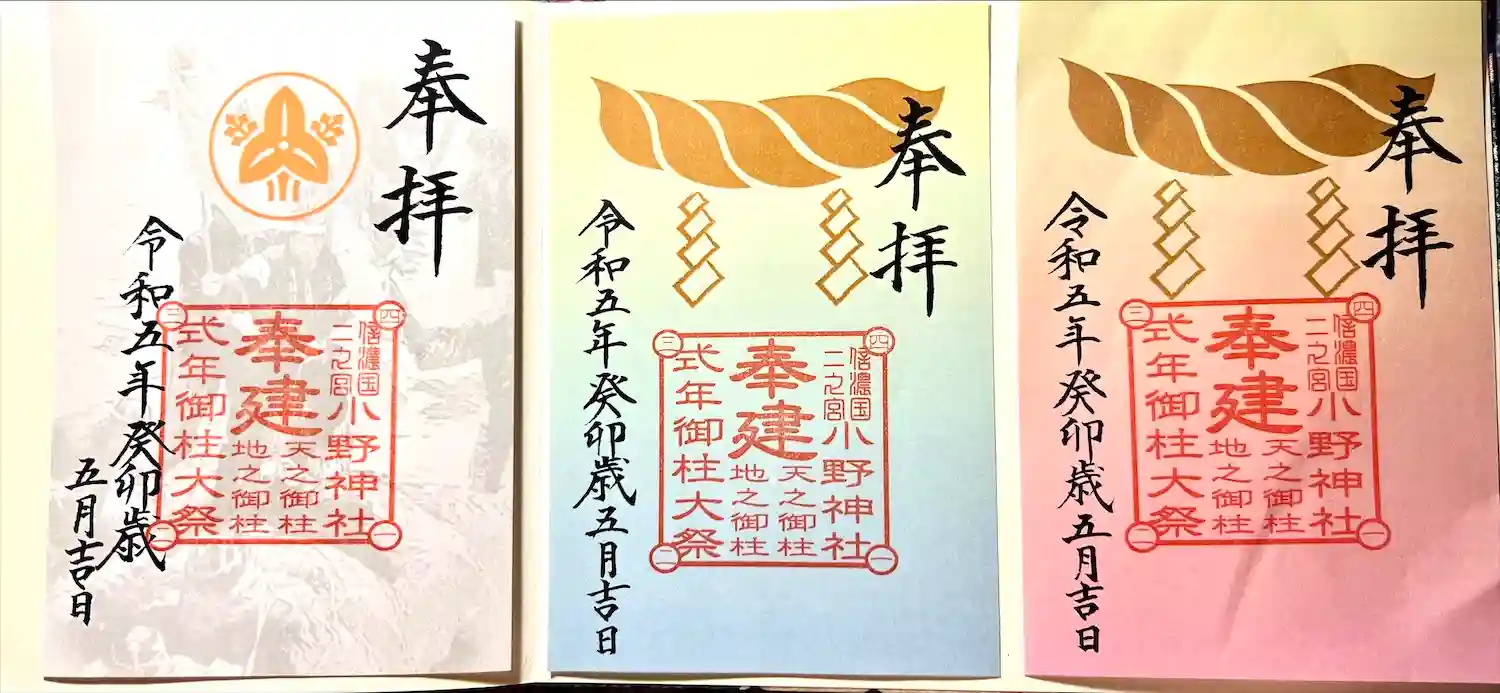 奉拝
令和五年癸卯歳
五月吉日
四
三
二
一
信濃国
二之宮
小野神社
奉建
天之御柱
地之御柱
式年御柱大祭
奉拝
令和五年癸卯歳五月吉日
四
三
二
一
信濃国
二之宮
小野神社
奉建
天之御柱
地之御柱
式年御柱大祭
奉拝
令和五年癸卯歳五月吉日
四
三
二
一
信濃国
二之宮
小野神社
奉建
天之御柱
地之御柱
式年御柱大祭